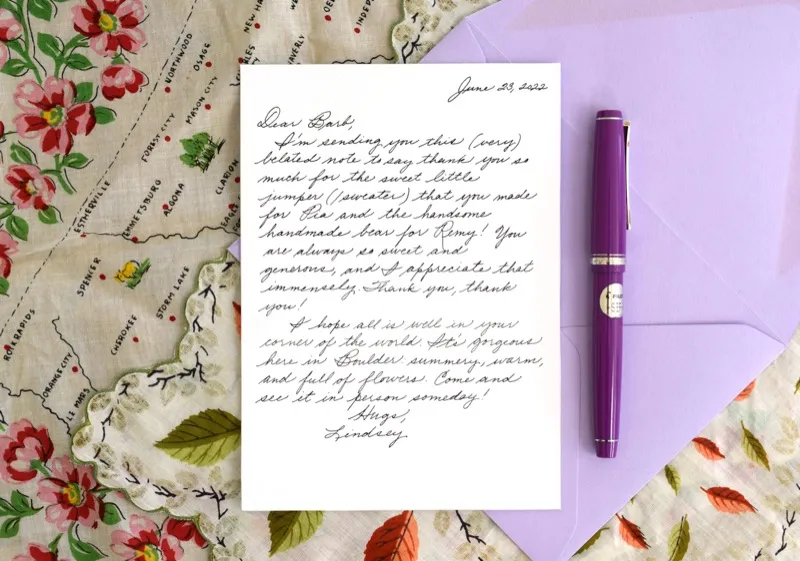 June 23, 2022
Dear Barb,
I'm sending you this (very)
belated note to say thank you so
much for the sweet little
jumper (/sweater) that you made
for Pia and the handsome
handmade bear for Remy! You
are always so sweet and
generous, and I appreciate that
immensely. Thank you, thank
you!
I hope all is well in your
corner of the world. It's gorgeous
here in Boulder summery, warm,
and full of flowers. Come and
see it in person someday!
Hugs,
Lindsey
NORTHWOOD
OSAGE
MASON CITY
FOREST CITY
CLARION
ESTHERVILLE
EMMETSBURG
ALGONA
EAGLE
SPENCER
STORM LAKE
CHEROKEE
ROCK RAPIDS
ORANGE CITY
LE MARS
WAVERLY
NEW HA
INDEPEN